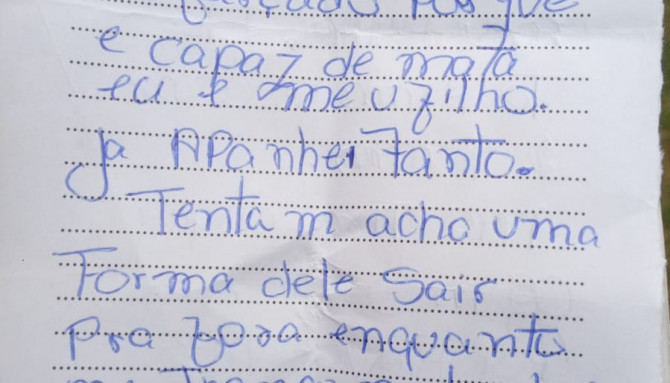 Por que
e capaz de mata
eu e meu filho.
Ja APanhei Tanto.
Tentam acha uma
Forma dele Sair
Pra fora enquanto